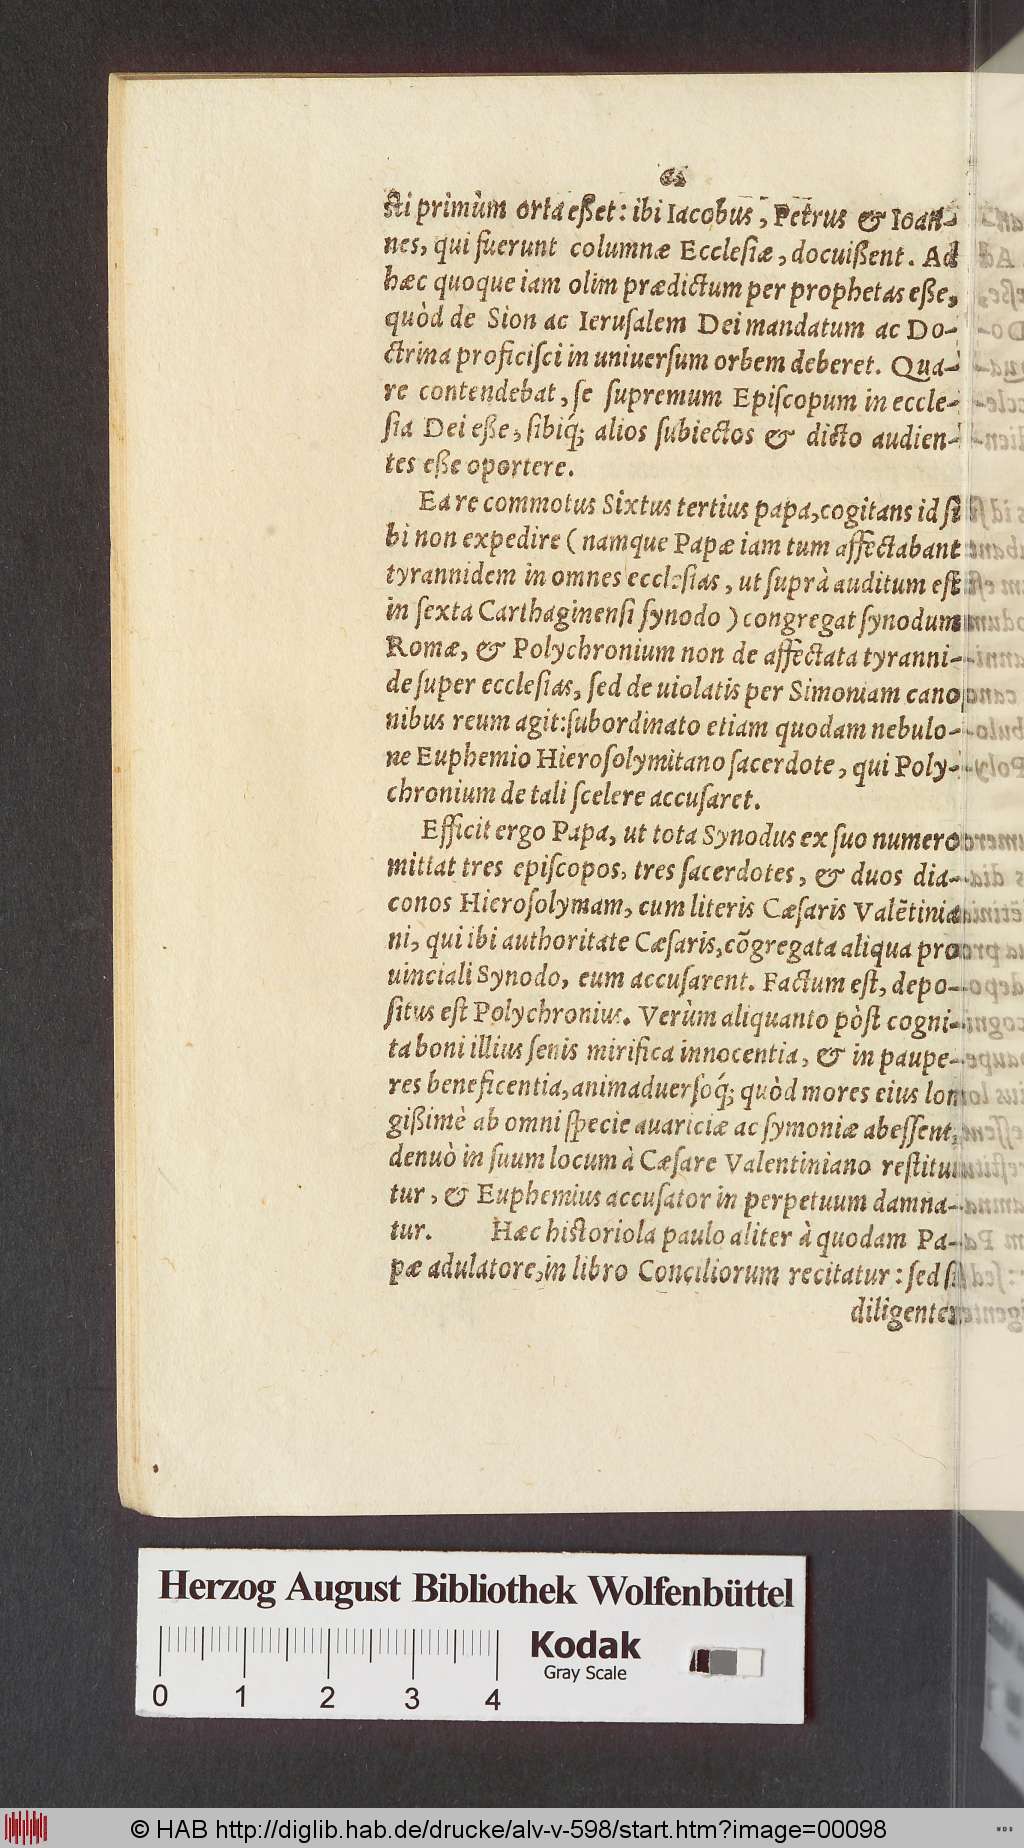 sti primùm orta eßet: ibi Iacobus, Petrus & Ioan-
nes, qui fuerunt columnæ Ecclesiæ, docuißent. Ad
hæc quoque iam olim prædictum per prophetas eße,
quòd de Sion ac Ierusalem Dei mandatum ac Do-
ctrina proficisci in uniuersum orbem deberet. Qua-
re contendebat, se supremum Episcopum in eccle-
sia Dei eße, sibiq́; alios subiectos & dicto audien-
tes eße oportere.
Ea re commotus Sixtus tertius papa, cogitans id si
bi non expedire (namque Papæ iam tum affectabant
tyrannidem in omnes ecclesias, ut suprà auditum est
in sexta Carthaginensi synodo) congregat synodum
Romæ, & Polychronium non de affectata tyranni-
de super ecclesias, sed de uiolatis per Simoniam cano
nibus reum agit: subordinato etiam quodam nebulo-
ne Euphemio Hierosolymitano sacerdote, qui Poly-
chronium de tali scelere accusaret.
Efficit ergo Papa, ut tota Synodus ex suo numero
mittat tres episcopos, tres sacerdotes, & duos dia-
conos Hierosolymam, cum literis Cæsaris Valẽtinia
ni, qui ibi authoritate Cæsaris, cõgregata aliqua pro
uinciali Synodo, eum accusarent. Factum est, depo-
situs est Polychronius. Verùm aliquanto pòst cogni-
ta boni illius senis mirifica innocentia, & in paupe-
res beneficentia, animaduersoq́; quòd mores eius lon
gißimè ab omni specie auariciæ ac symoniæ abessent,
denuò in suum locum à Cæsare Valentiniano restitui
tur, & Euphemius accusator in perpetuum damna-
tur. Hæc historiola paulo aliter à quodam Pa-
pæ adulatore, in libro Conciliorum recitatur: sed si
diligenter
Herzog August Bibliothek Wolfenbüttel
Kodak
Gray Scale
0 1 2 3 4
© HAB http://diglib.hab.de/drucke/alv-v-598/start.htm?image=00098